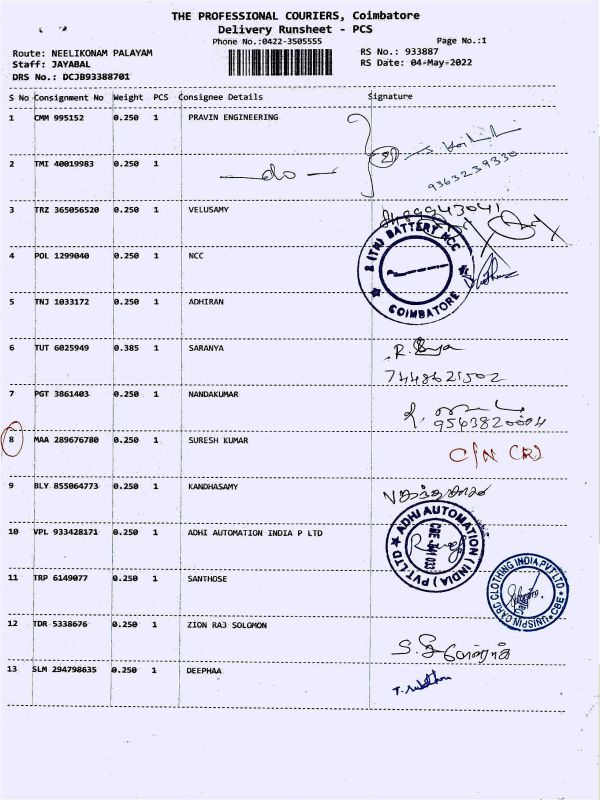 THE PROFESSIONAL COURIERS, Coimbatore
Delivery Runsheet - PCS
Phone No.:0422-3505555
Page No.:1
Route: NEELIKONAM PALAYAM
RS No.: 933887
Staff: JAYABAL
RS Date: 04-May-2022
DRS No.: DCJB93388701
S No Consignment No Weight PCS Consignee Details Signature
1 CMM 995152 0.250 1 PRAVIN ENGINEERING
2 TMI 40019983 0.250 1 do
9363239330
3 TRZ 365056520 0.250 1 VELUSAMY
4 POL 1299040 0.250 1 NCC
2 (TN) BATTERY NCC
COIMBATORE
5 TNJ 1033172 0.250 1 ADHIRAN
6 TUT 6025949 0.385 1 SARANYA
7448621502
7 PGT 3861403 0.250 1 NANDAKUMAR
9543820004
8 MAA 289676780 0.250 1 SURESH KUMAR C/N (R)
9 BLY 855064773 0.250 1 KANDHASAMY
10 VPL 933428171 0.250 1 ADHI AUTOMATION INDIA P LTD
ADHI AUTOMATION (INDIA) PVT. LTD
CBE - 641 033
11 TRP 6149077 0.250 1 SANTHOSE
CLOTHING INDIA PVT LTD
CBE
12 TDR 5338676 0.250 1 ZION RAJ SOLOMON
13 SLM 294798635 0.250 1 DEEPHAA